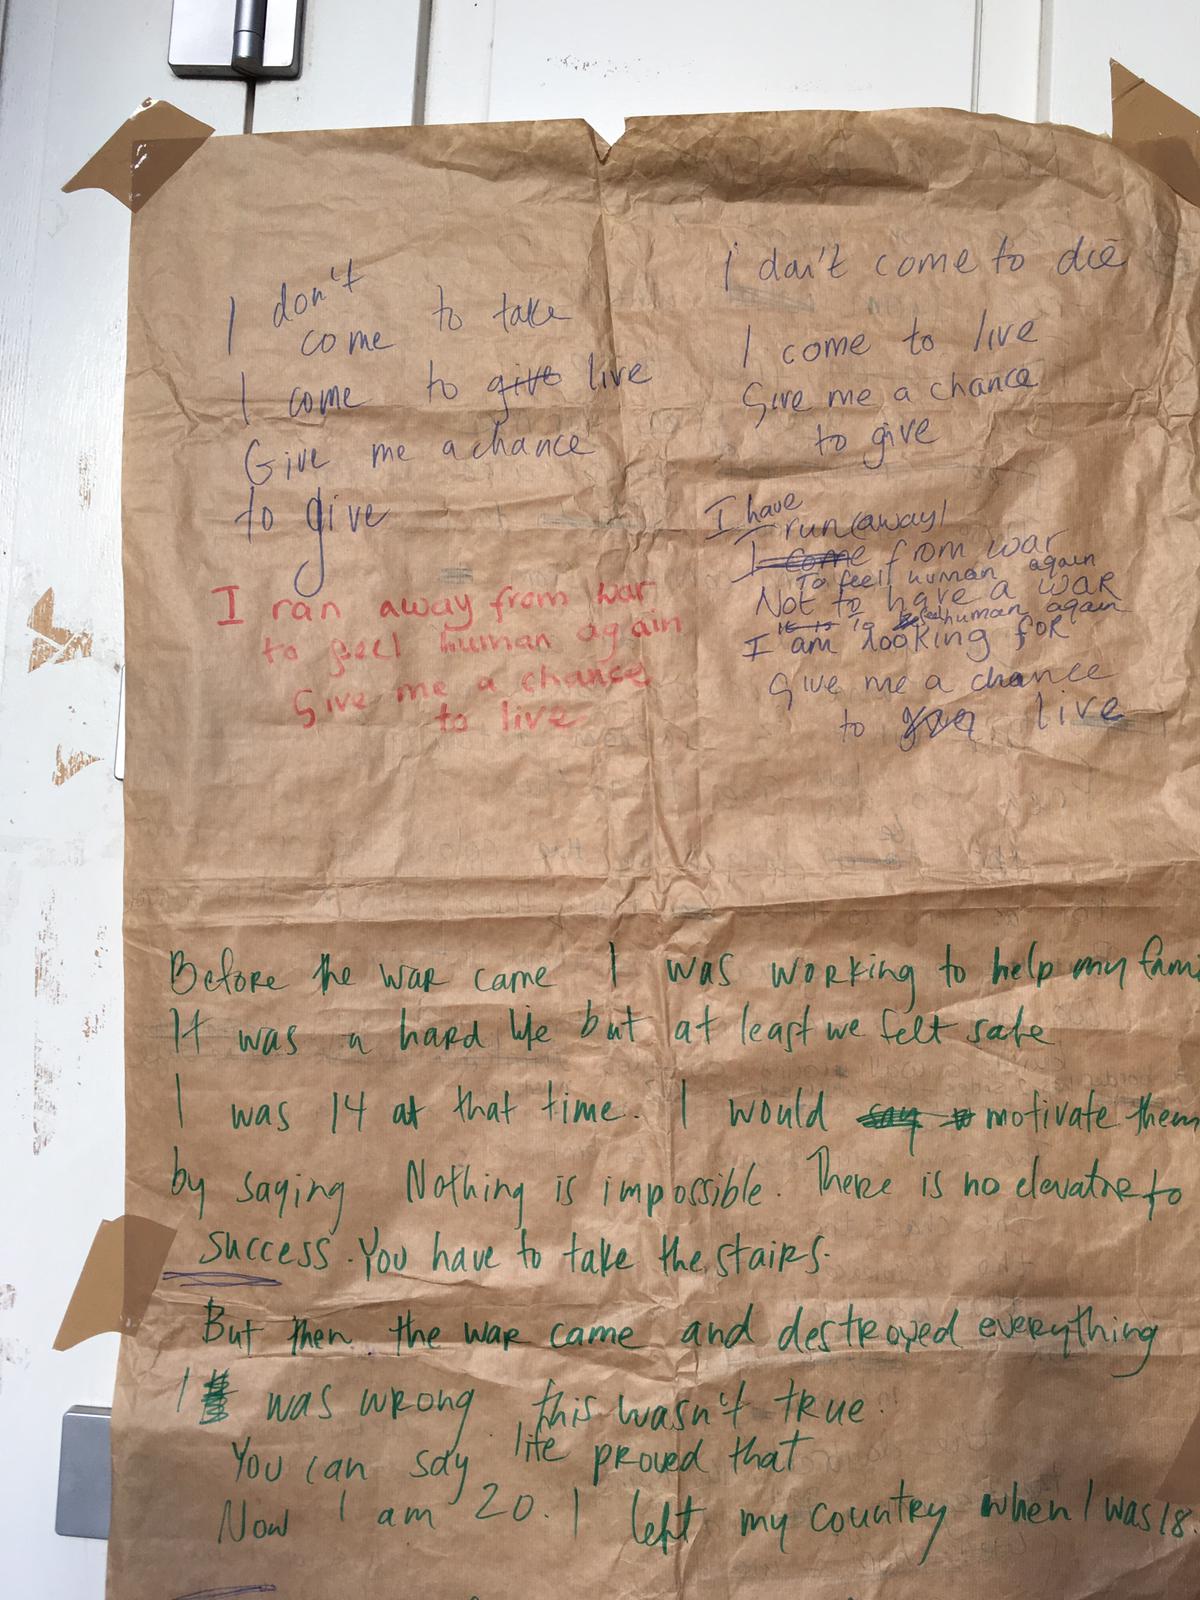 I don't
come to take
I come to give live
Give me a chance
to give
I ran away from war
to feel human again
Give me a chance
to live
I don't come to die
I come to live
Give me a chance
to give
I have
run (away)
I come from war
To feel human again
Not to have a war
it is to feel human again
I am looking for
Give me a chance
to live
Before the war came I was working to help my fami
It was a hard life but at least we felt safe
I was 14 at that time. I would say motivate them
by saying Nothing is impossible. There is no elevator to
success. You have to take the stairs.
But then the war came and destroyed everything
I was wrong this wasn't true!
You can say life proved that
Now I am 20. I left my country when I was 18.